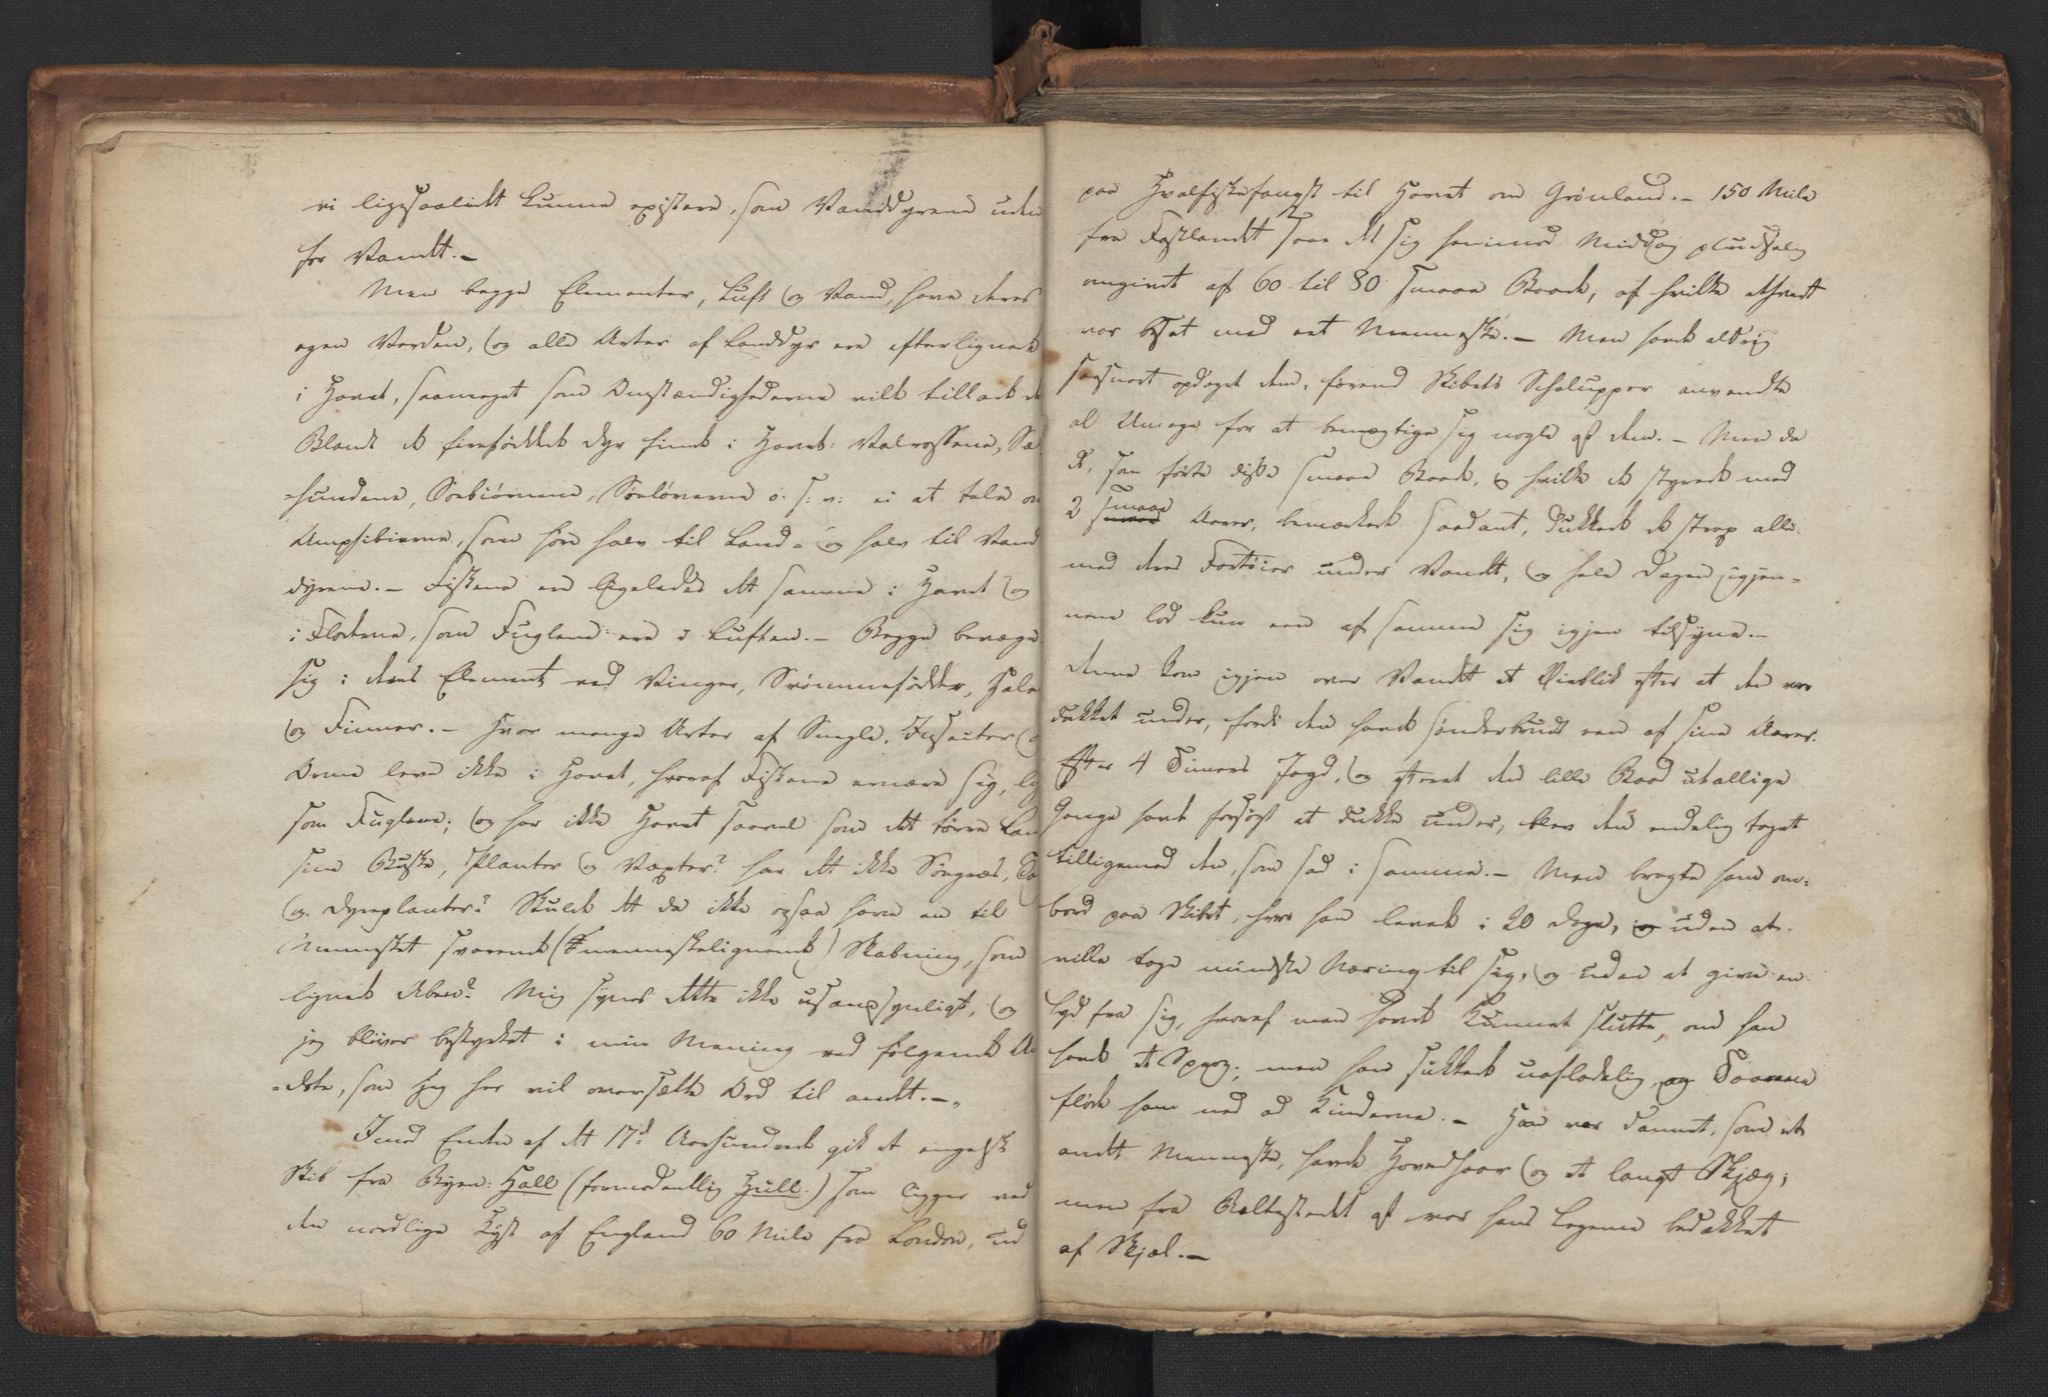 vi ligesaalidt kunne existere, som Vanddyrene uden
for Vandt.-
Men begge Elementer, Luft og Vand, have deres
egen Verden, og alle Arter af Landdyr ere efterlignede
i Havet, saameget som Omstændighederne vilde tillade de
Blandt de fireføddede Dyr finde i Havet: Valrossene, Sæ
=hundene, Søebiørnene, Søeløverne o: s: v: ei at tale om
Amphibierne, som høre halv til Land- og halv til Vand
dyrene.- Fiskene ere ligeledes dt samme i Havet og
i Floderne, som Fuglene ere i Luften.- Begge bevæge
sig i deres Element ved Vinger, Svømmefødder, Hale
og Finner.- Hvor mange Arter af Snegle, Insecter og
Orme leve ikke i Havet, hvoraf Fiskene ernære sig, lig
som Fuglene; og har ikke Havet saavel som dt tørre Lan
sine Buske, Planter og Væxter? har dt ikke Søegræs,
og Dyreplanter? Skulde dt da ikke ogsaa have en til
Mennesket svarende (menneskelignende) Skabning, som
lignede Aben? Mig synes dtte ikke usandsynligt, og
jeg bliver bestyrket i min Mening ved følgende An
=dote, som jeg her vil oversætte Ord til andet.-
Imod Enden af dt 17d Aarhundrede gik et engelsk
Skib fra Byen: Hall (formodentlig Hull.) som ligger ved
den nordlige Kyst af England 60 Mile fra London, ud
paa Hvalfiskefangst til Havet om Grønland.- 150 Mile
fra Fastlandt saae dt sig henimod Middag pludselig
omgivet af 60 til 80 smaae Baade, af hvilke ethvert
var besat med eet Menneske.- Man havde aldrig
saasnart opdaget dem, førend Skibets Schalupper anvendte
al Umage for at bemægtige sig nogle af dem.- Men da
d, som førte disse smaae Baade, og hvilke de styrede med
2 smaae Aarer, bemærkede saadant, dukkede de strax alle
med deres Fartøier under Vandt, og hele Dagen igjen=
nem lod kun een af samme sig igjen tilsyne.-
Denne kom igjen over Vandt et Øieblik efter at den var
dukket under, fordi den havde sønderbrudt een af sine Aarer.
Efter 4 Timers Jagd, og efterat den lille Baad utallige
Gange havde forsøgt at dukke under, blev den endelig taget
tilligemed den, som sad i samme.- Man bragte ham om=
bord paa Skibet, hvor han levede i 20 Dage, uden at
ville tage mindste Næring til sig, og uden at give en
Lyd fra sig, hvoraf man havde kunnet slutte, om han
havde et Sprog; men han sukkede uafladelig, og Taarene
fløde ham ned ad Kinderne.- Han var dannet, som et
andt Menneske, havde Hovedhaar og et langt Skjæg;
men fra Beltestedt af var hans Legeme bedækket
af Skjæl.-